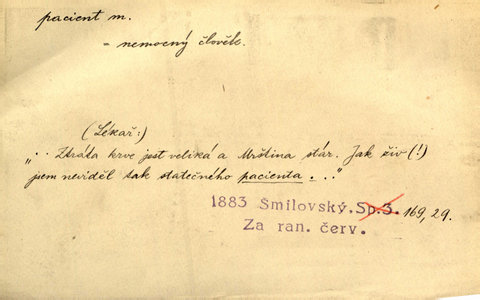 pacient m.
= nemocný člověk.
(Lékař:)
„. . Ztráta krve jest veliká a Mrština stár. Jak živ (!)
jsem neviděl tak statečného pacienta . . ."
1883 Smilovský. Sp. 3. 169, 29.
Za ran. červ.